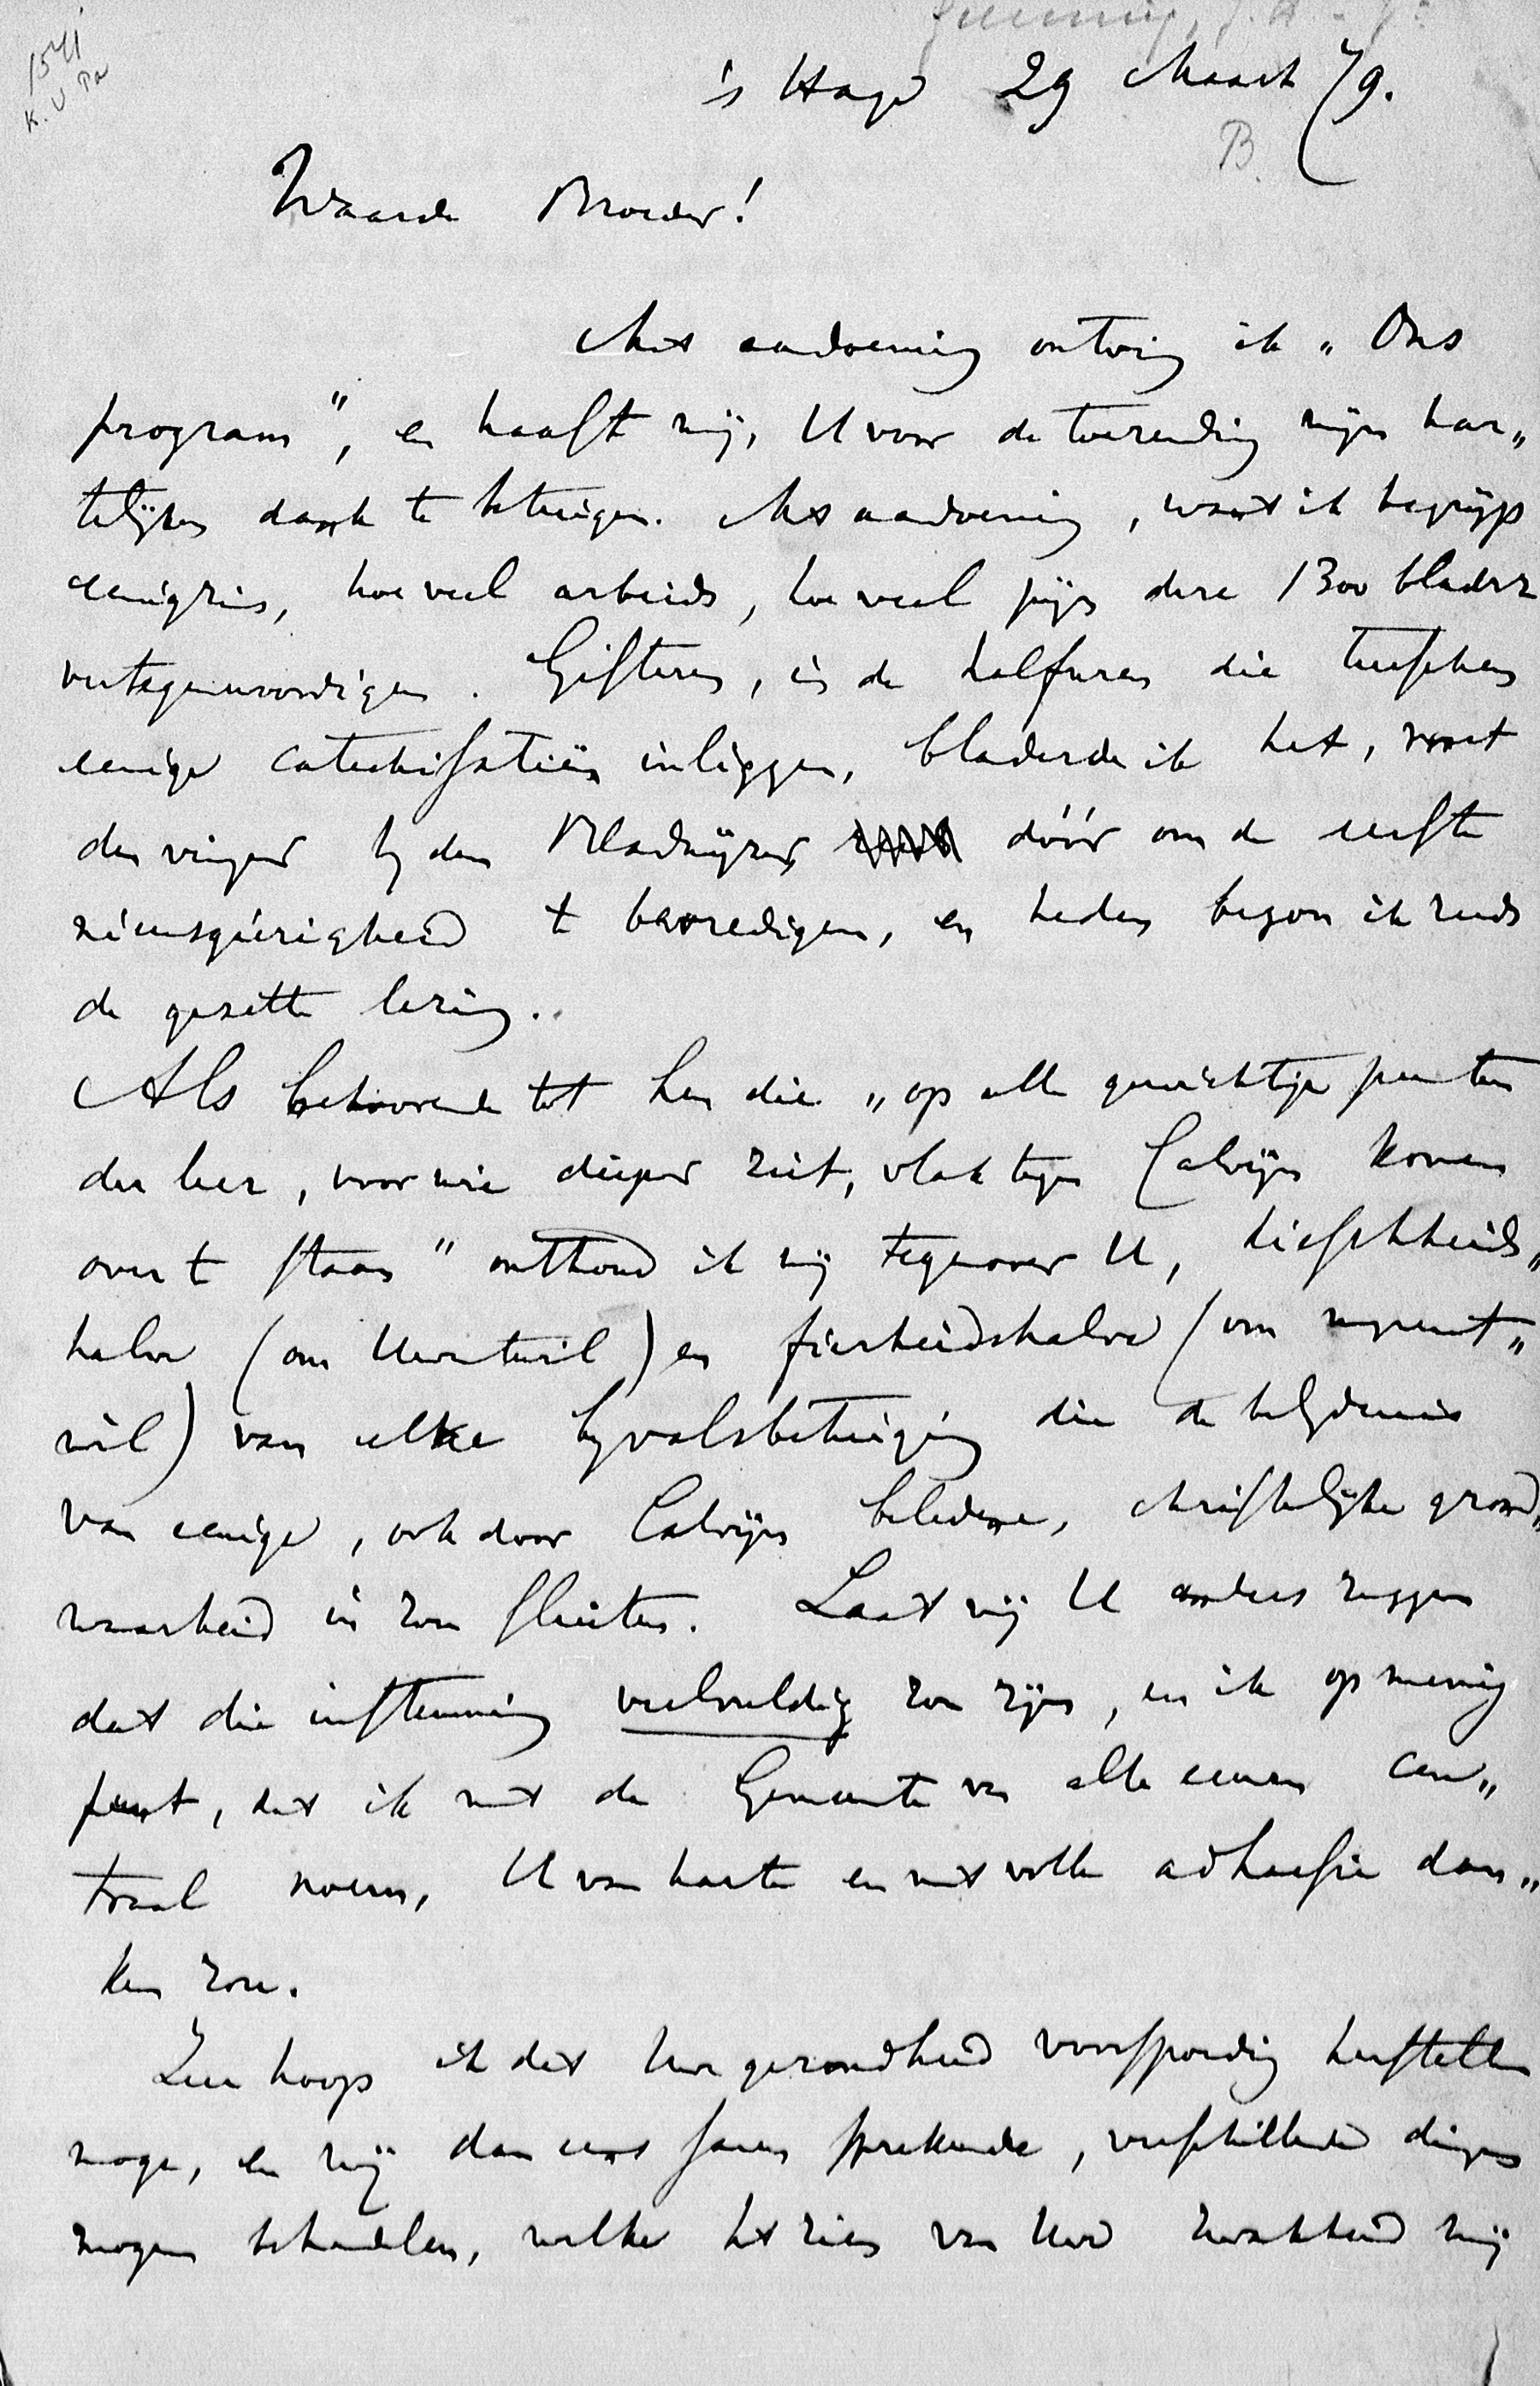 Gunning, J.H. Jr.
1541
K. U Pa
's Hage 29 Maart 79.
B.
Waarde Broeder!
Met aandoening ontving ik „Ons
program", en haast mij, U voor de toezending mijn har„
telijken dank te betuigen. Met aandoening, want ik begrijp
eenigzins, hoeveel arbeids, hoeveel pijn deze 1300 bladz
vertegenwoordigen. Gisteren, in de halfuren die tusschen
eenige catechisatiën inliggen, bladerde ik het, met
den vinger bij den Bladwijzer dóór om de eerste
nieuwsgierigheid te bevredigen, en heden begon ik reeds
de gezette lezing.
Als behoorende tot hen die „op alle gewichtige punten
der leer, voor wie dieper ziet, vlak tegen Calvijn komen
over te staan" onthoud ik mij tegenover U, kieschheids„
halve (om Uwentwil) en fierheidshalve (om mijnent„
wil) van elke bijvalsbetuiging die de belijdenis
van eenige, ook door Calvijn beledene, christelijke grond„
waarheid in zou sluiten. Laat mij U anders zeggen
dat die instemming veelvuldig zou zijn, en ik op menig
punt, dat ik met de Gemeente van alle eeuwen cen„
traal noem, U van harte en met volle adhaesie dan„
ken zou.
Zeer hoop ik dat Uwe gezondheid voorspoedig herstellen
moge, en wij dan eens samen sprekende, verschillende dingen
mogen behandelen, welke het zien van Uwe zwakheid mij